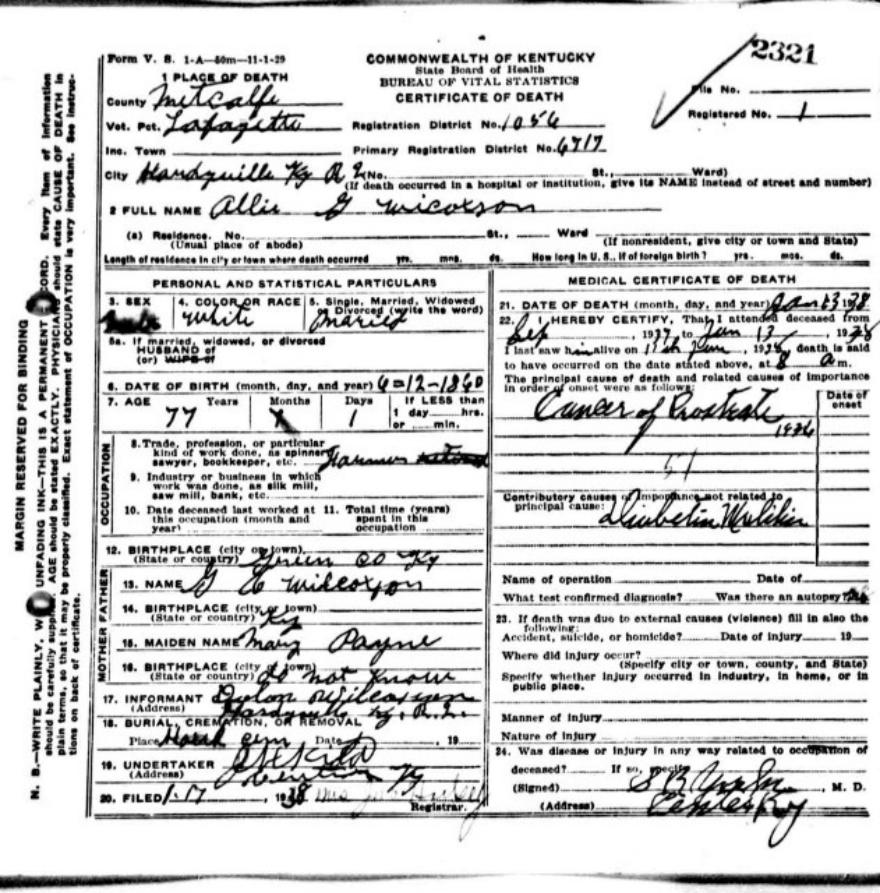 2321
Form V. S. 1-A—50m—11-1-29
COMMONWEALTH OF KENTUCKY
State Board of Health
BUREAU OF VITAL STATISTICS
CERTIFICATE OF DEATH
File No.
Registered No. 1
1 PLACE OF DEATH
County Metcalfe
Vot. Pct. Lafayette
Registration District No. 1056
Inc. Town
Primary Registration District No. 6717
City Hardyville Ky R 2 No. St., Ward)
(If death occurred in a hospital or institution, give its NAME instead of street and number)
2 FULL NAME Allie G Wicoxson
(a) Residence. No. St., Ward
(Usual place of abode)
(If nonresident, give city or town and State)
Length of residence in city or town where death occurred yrs. mos. ds. How long in U. S., if of foreign birth? yrs. mos. ds.
PERSONAL AND STATISTICAL PARTICULARS
3. SEX
4. COLOR OR RACE White
5. Single, Married, Widowed
or Divorced (write the word)
Married
5a. If married, widowed, or divorced
HUSBAND of
(or) WIFE of
6. DATE OF BIRTH (month, day, and year) 6=12-1860
7. AGE Years Months Days If LESS than
77 1 1 day hrs.
or min.
OCCUPATION
8. Trade, profession, or particular
kind of work done, as spinner,
sawyer, bookkeeper, etc. Farmer retired
9. Industry or business in which
work was done, as silk mill,
saw mill, bank, etc.
10. Date deceased last worked at
this occupation (month and
year)
11. Total time (years)
spent in this
occupation
12. BIRTHPLACE (city or town)
(State or country) Green Co Ky
FATHER
13. NAME G E Wilcoxson
14. BIRTHPLACE (city or town)
(State or country) Ky
MOTHER
15. MAIDEN NAME Mary Payne
16. BIRTHPLACE (city or town)
(State or country) do not know
17. INFORMANT Wilcoxson
(Address) Hardyville Ky. R. 2.
18. BURIAL, CREMATION, OR REMOVAL
Place cem Date , 19
19. UNDERTAKER
(Address) Ky
20. FILED 1-17, 1938 Mrs
Registrar.
MEDICAL CERTIFICATE OF DEATH
21. DATE OF DEATH (month, day, and year) Jan 13 1938
22. I HEREBY CERTIFY, That I attended deceased from
Sep, 1937, to Jan 13, 1938
I last saw him alive on 13th Jan, 1938, death is said
to have occurred on the date stated above, at 8 a m.
The principal cause of death and related causes of importance
in order of onset were as follows:
Date of
onset
Cancer of Prostrate
1936
51
Contributory causes of importance not related to
principal cause:
Name of operation Date of
What test confirmed diagnosis? Was there an autopsy? no
23. If death was due to external causes (violence) fill in also the
following:
Accident, suicide, or homicide? Date of injury 19
Where did injury occur?
(Specify city or town, county, and State)
Specify whether injury occurred in industry, in home, or in
public place.
Manner of injury
Nature of injury
24. Was disease or injury in any way related to occupation of
deceased? If so, specify
(Signed) , M. D.
(Address) Center Ky
MARGIN RESERVED FOR BINDING
N. B.—WRITE PLAINLY, UNFADING INK—THIS IS A PERMANENT Every item of information
should be carefully AGE should be stated EXACTLY. should state CAUSE OF DEATH in
plain terms, so that it may be properly classified. Exact statement of OCCUPATION is very important. See instruc-
tions on back of certificate.